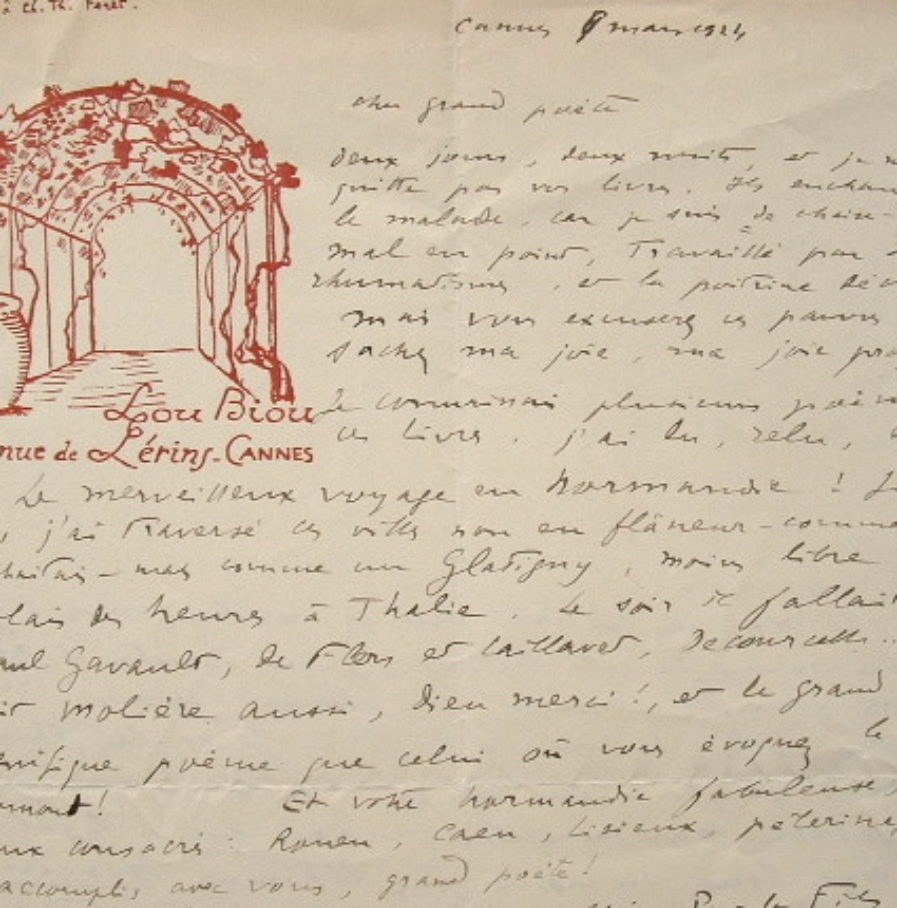 à Ch. Th. Feret.
Cannes 8 mars 1924
cher grand poète
deux jours, deux nuits, et je n
quitte pas vos livres. Ils enchan
le malade, car je suis de chaise-
mal en point, Travaillé par
rhumatismes, et la poitrine
mais vous excuserez ces pauvres
sachez ma joie, ma joie pro
Lou Biou
nue de Lérins-CANNES
Je connaissais plusieurs poèm
ces livres. j'ai lu, relu,
Le merveilleux voyage en Normandie !
, j'ai Traversé ces villes non en flâneur - comme
haitais - mais comme un Glatigny, moins libre
lais des heures à Thalie. Le soir il fallait
aul Gavault, de Flers et Caillavet, Decourcelle..
Molière aussi, Dieu merci !, et le grand
nifique poème que celui où vous évoquez le
mont! Et votre Normandie fabuleuse,
ux consacrés : Rouen, Caen, Lisieux, pélerinage
accompli, avec vous, grand poète!